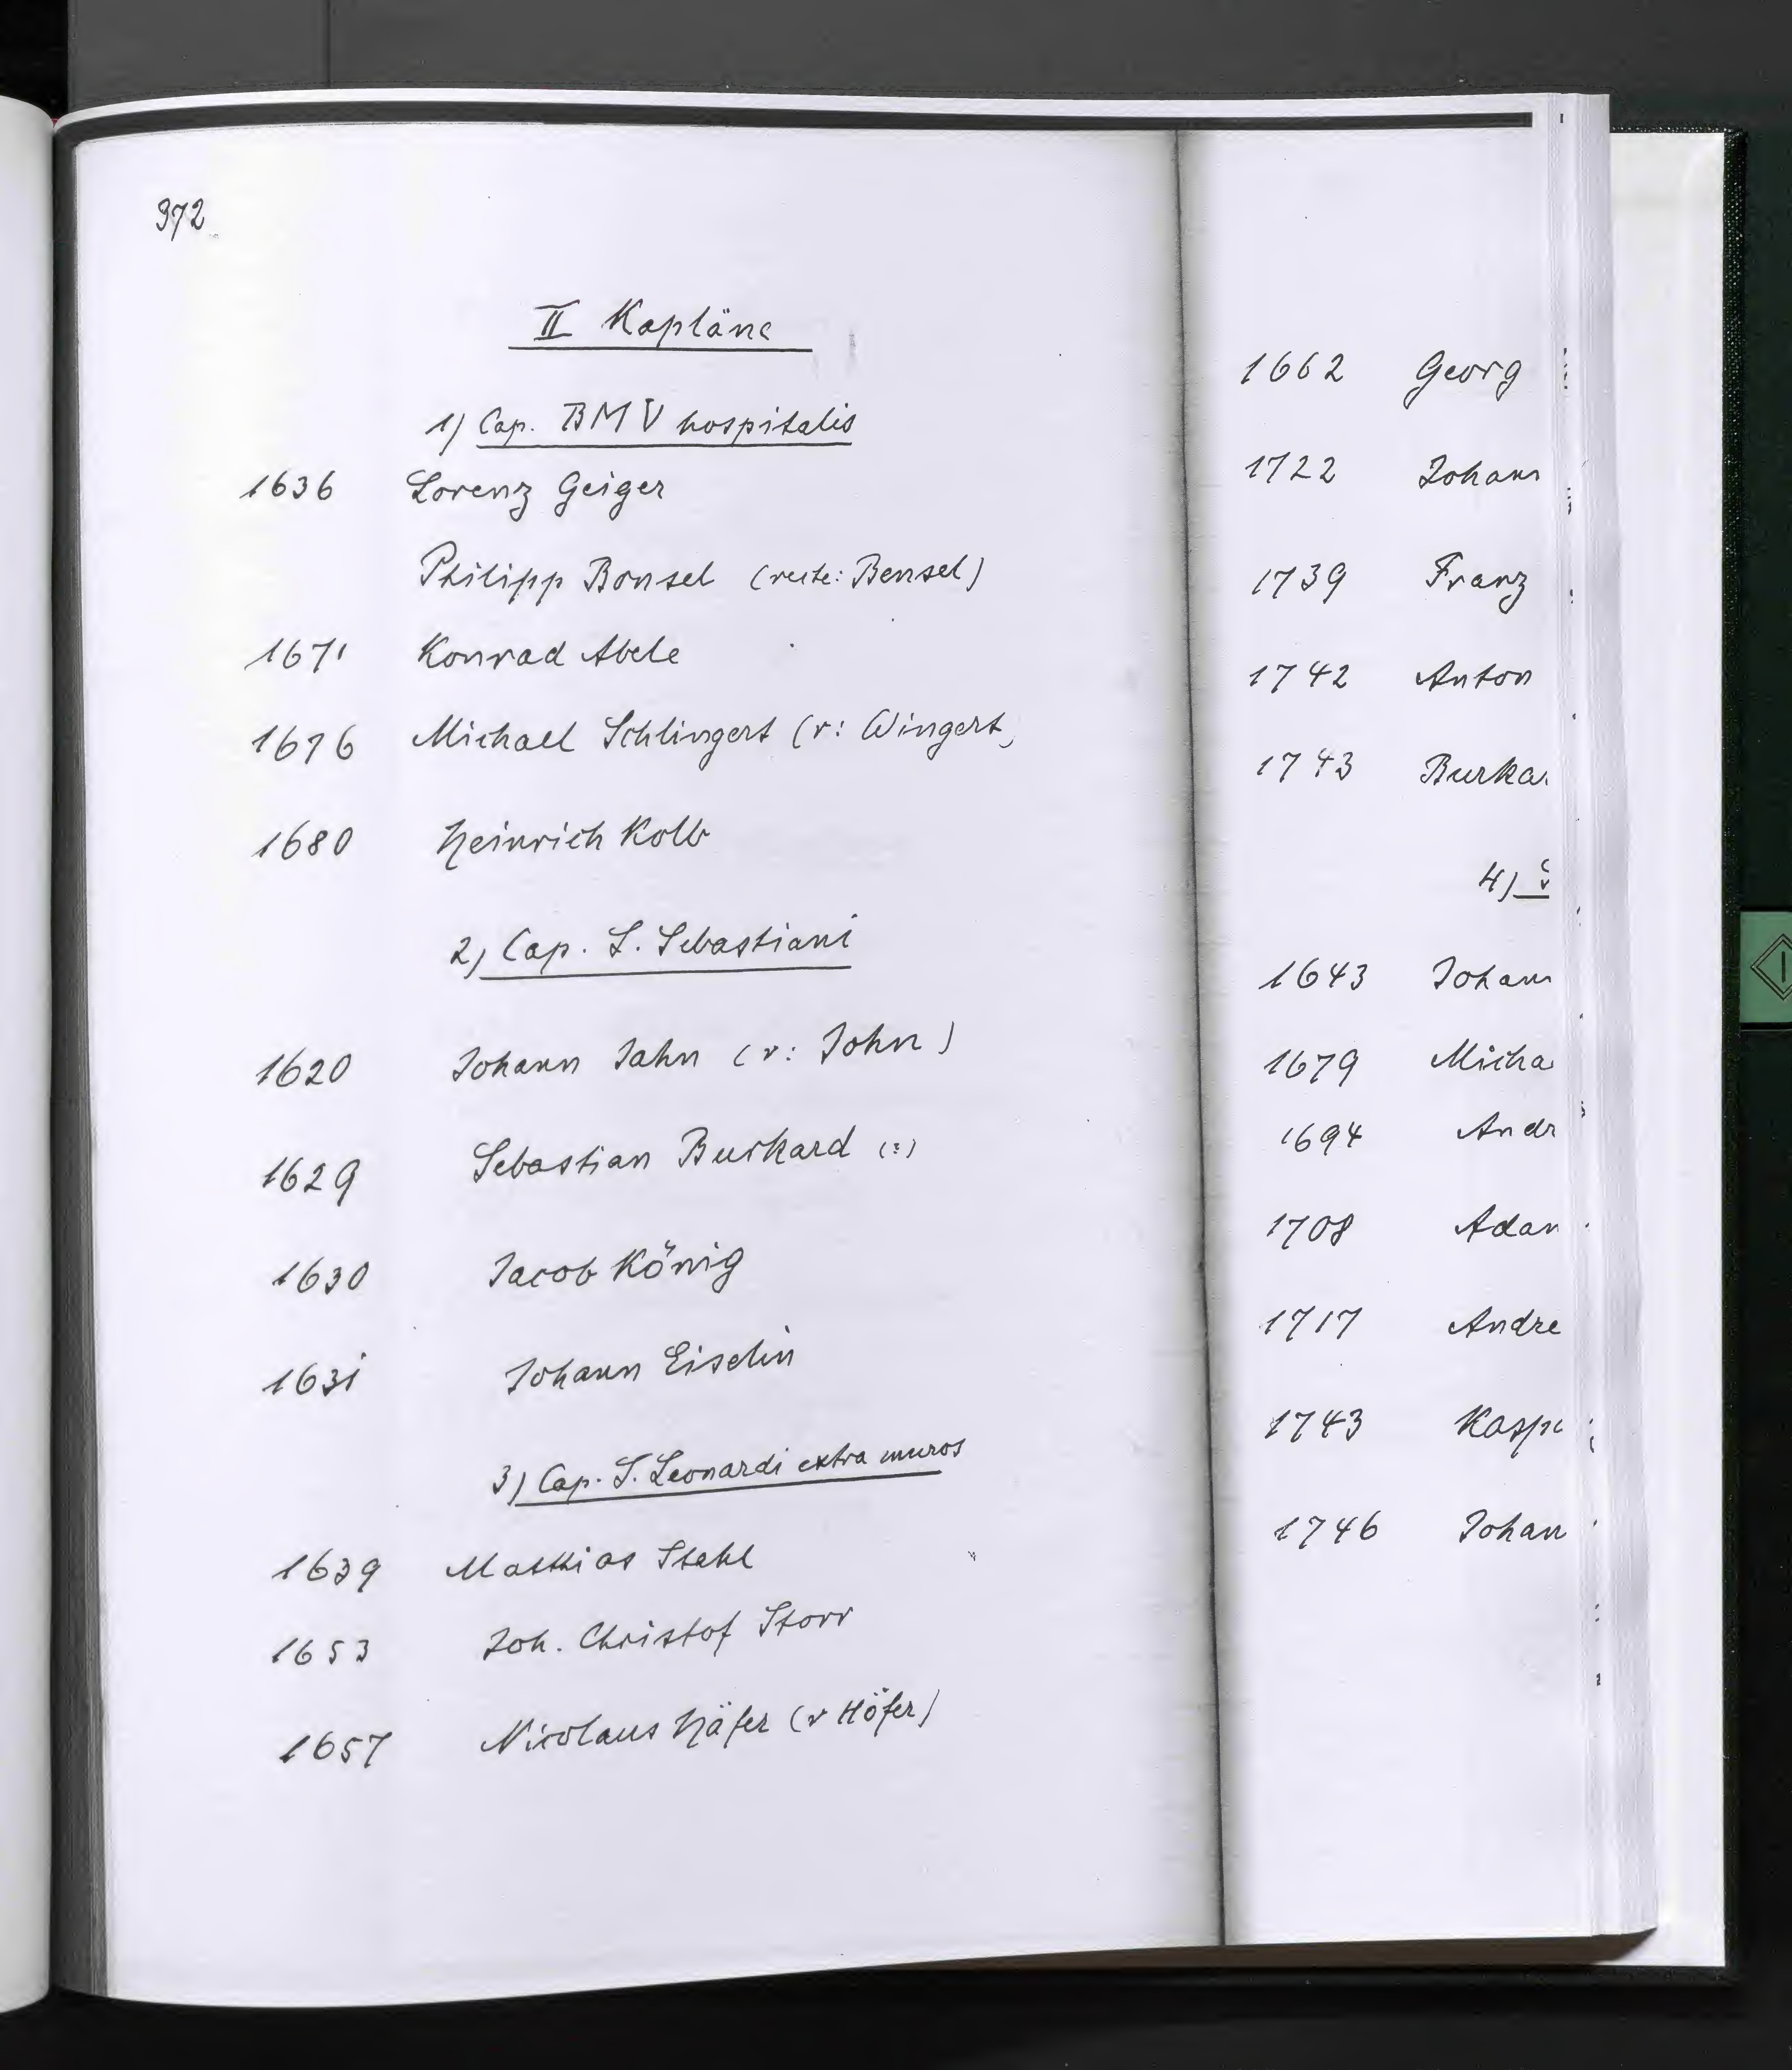 372
II Kapläne
1) Cap. BMV hospitalis
1636 Lorenz Geiger
Philipp Bonsel (recte: Bensel)
1671 Konrad Abele
1676 Michael Schlingert (r: Wingert,
1680 Heinrich Kolb
2) Cap. S. Sebastiani
1620 Johann Jahn (r: John)
1629 Sebastian Burkard (:)
1630 Jacob König
1631 Johann Eiselin
3) Cap. S. Leonardi extra muros
1639 Matthias Stahl
1653 Joh. Christof Storr
1657 Nicolaus Häfer (r Höfer)
1662 Georg
1722 Johann
1739 Franz
1742 Anton
1743 Burka
4)
1643 Johann
1679 Micha
1694 Andr
1708 Adam
1717 Andre
1743 Kasp
1746 Johan